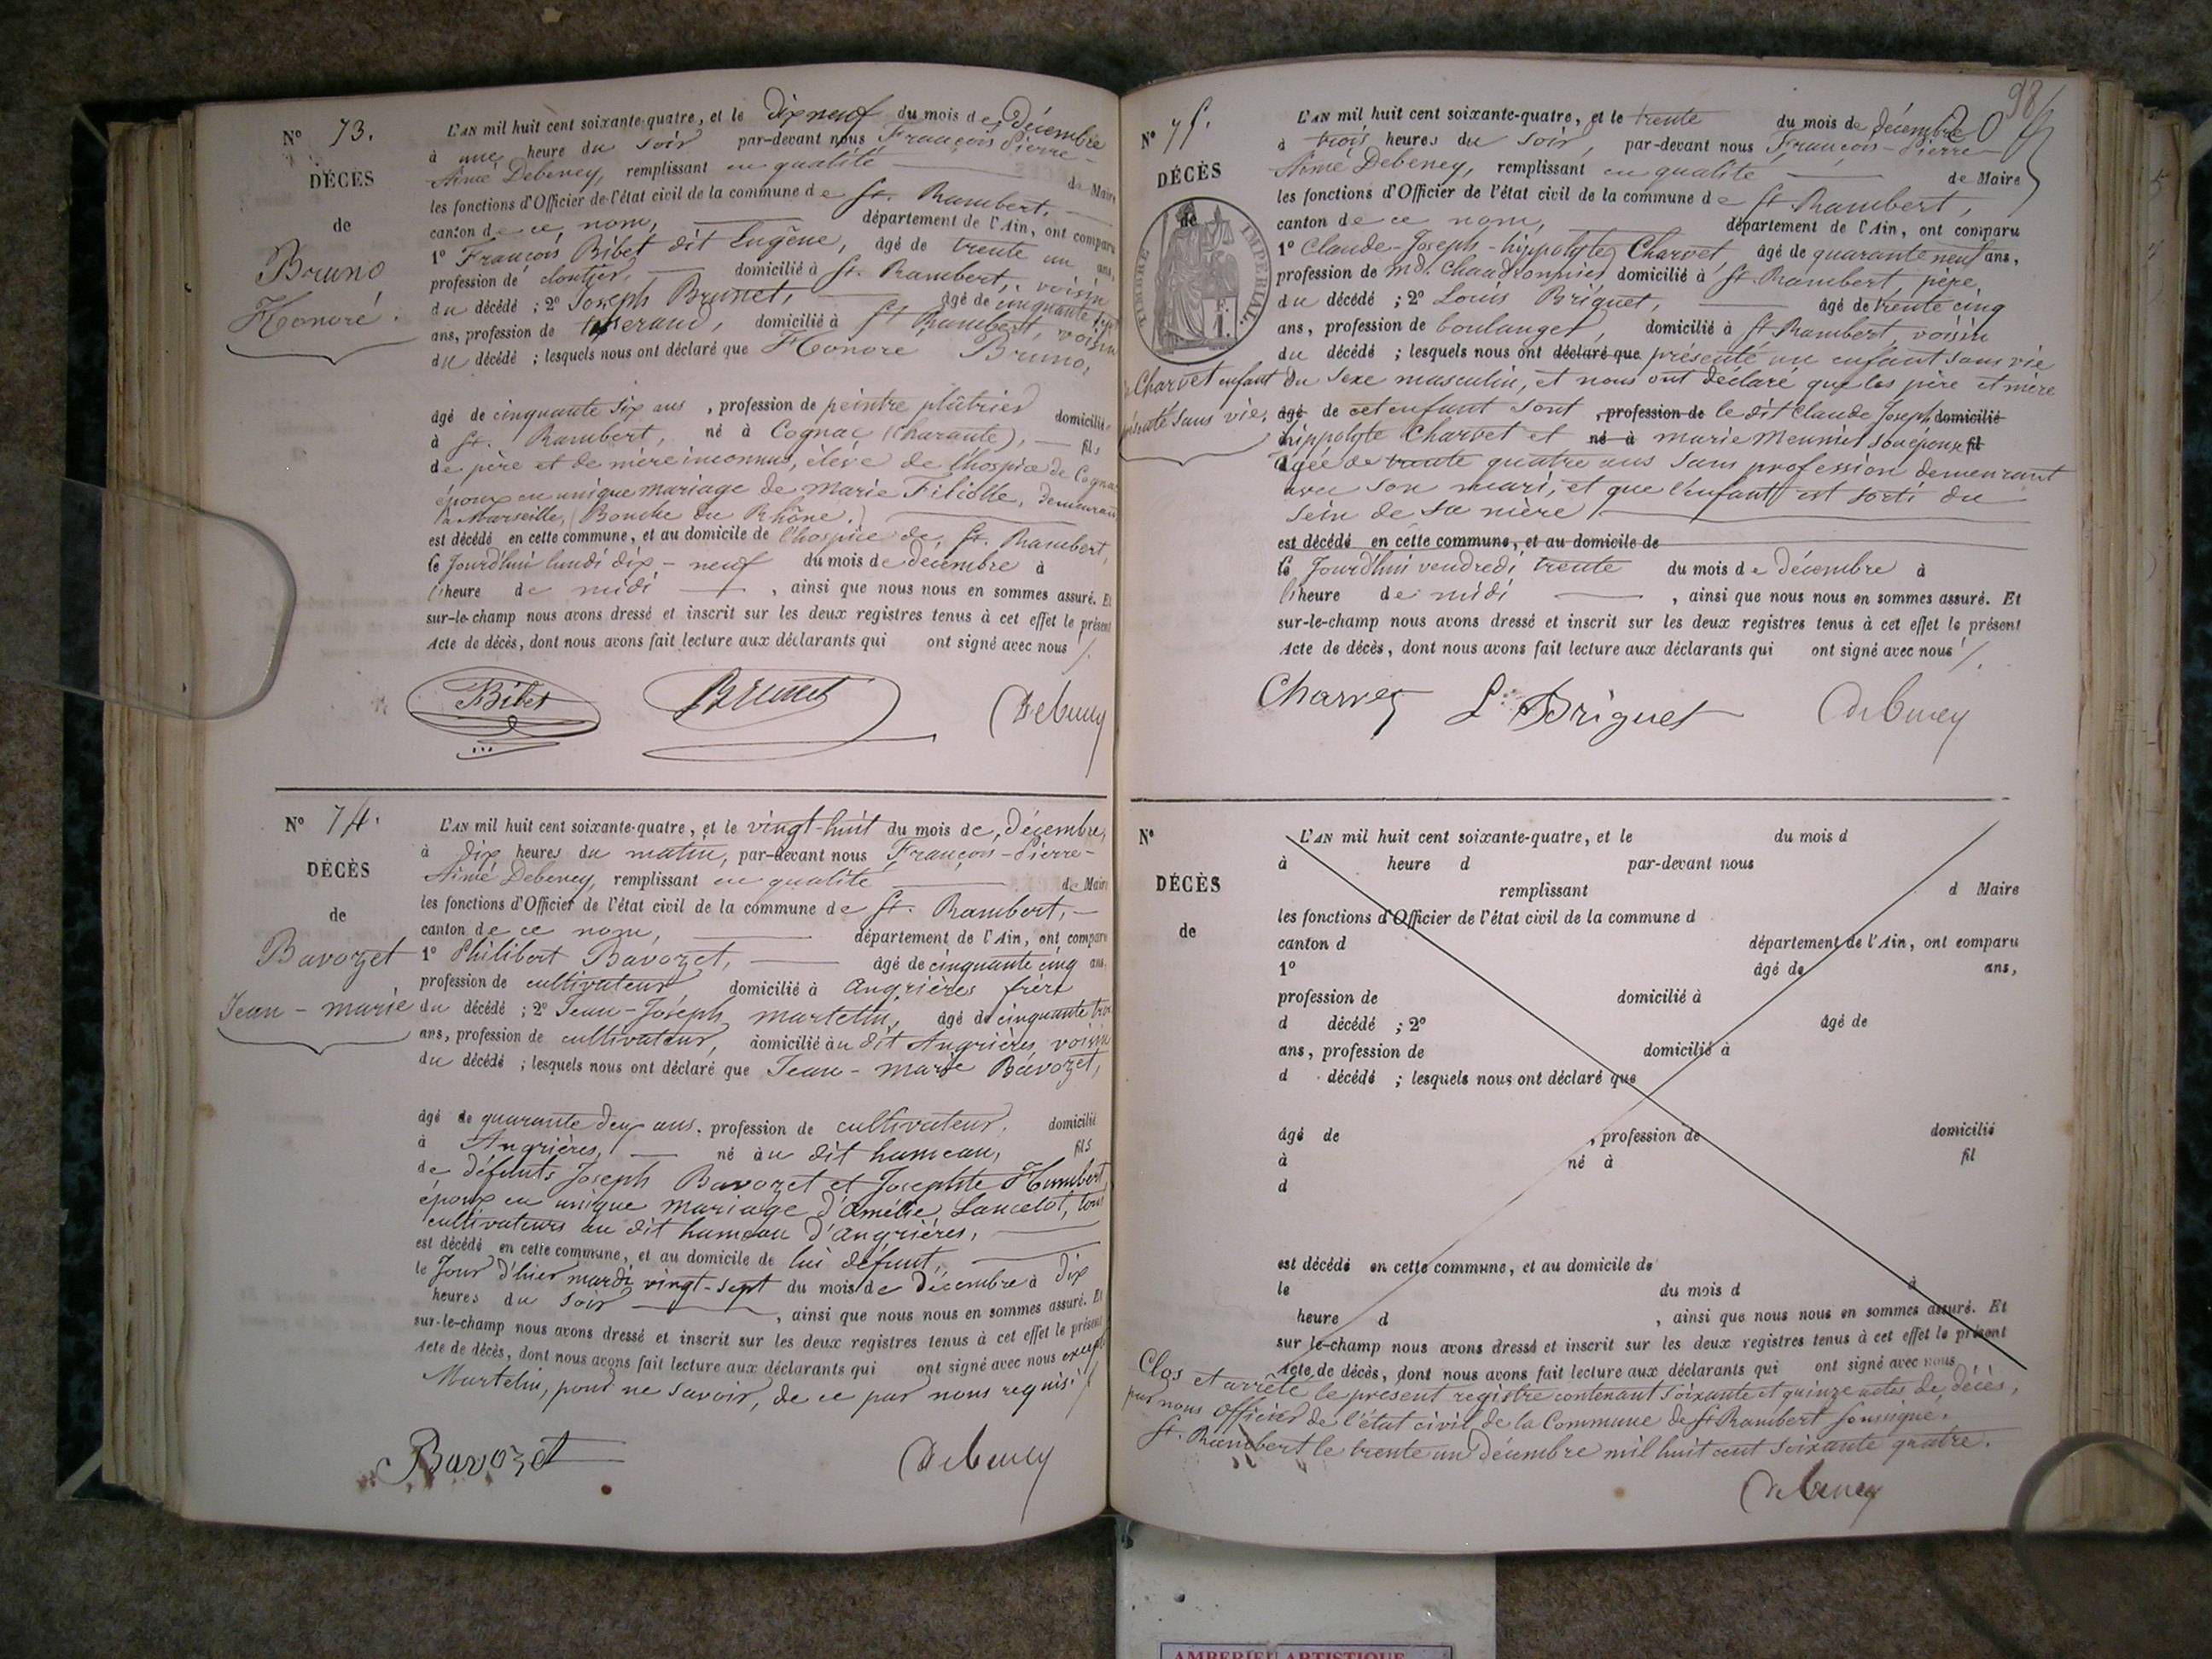 N° 73.
DÉCÈS
de
Bruno
Honoré.
L'AN mil huit cent soixante-quatre, et le dix neuf du mois de Décembre
à une heure du soir par-devant nous François Pierre-
Aimé Debeney, remplissant en qualité de Maire
les fonctions d'Officier de l'état civil de la commune de St. Rambert,
canton de ce nom, département de l'Ain, ont comparu
1° François Bibet dit Eugène, âgé de trente un ans,
profession de cloutier, domicilié à St. Rambert, voisin
du décédé ; 2° Joseph Brunet, âgé de cinquante
ans, profession de tisserand, domicilié à St Rambert, voisin
du décédé ; lesquels nous ont déclaré que Honoré Bruno,
âgé de cinquante six ans, profession de peintre plâtrier domicilié
à St. Rambert, né à Cognac (Charante), fils
de père et de mère inconnus, élève de l'hospice de Cognac
époux en unique mariage de Marie Filiolle, demeurant
à Marseille, (Bouche du Rhône.)
est décédé en cette commune, et au domicile de l'hospice de St. Rambert,
le Jourd'hui lundi dix-neuf du mois de décembre à
l'heure de midi, ainsi que nous nous en sommes assuré. Et
sur-le-champ nous avons dressé et inscrit sur les deux registres tenus à cet effet le présent
Acte de décès, dont nous avons fait lecture aux déclarants qui ont signé avec nous /.
Bibet Brunet Debeney
N° 74.
DÉCÈS
de
Bavozet
Jean-marie
L'AN mil huit cent soixante-quatre, et le vingt-huit du mois de Décembre,
à dix heures du matin, par-devant nous François-Pierre-
Aimé Debeney, remplissant en qualité de Maire
les fonctions d'Officier de l'état civil de la commune de St. Rambert,
canton de ce nom, département de l'Ain, ont comparu
1° Philibert Bavozet, âgé de cinquante cinq ans,
profession de cultivateur, domicilié à Angrières frère
du décédé ; 2° Jean-Joseph martelin, âgé de cinquante trois
ans, profession de cultivateur, domicilié au dit Angrières voisin
du décédé ; lesquels nous ont déclaré que Jean-marie Bavozet,
âgé de quarante deux ans, profession de cultivateur, domicilié
à Angrières, né au dit hameau, fils
de défunts Joseph Bavozet et Josephte Humbert
époux en unique mariage d'Amélie Lancelot, tous
cultivateurs au dit hameau d'angrières,
est décédé en cette commune, et au domicile de lui défunt,
le Jour d'hier mardi vingt-sept du mois de Décembre à dix
heures du soir, ainsi que nous nous en sommes assuré. Et
sur-le-champ nous avons dressé et inscrit sur les deux registres tenus à cet effet le présent
Acte de décès, dont nous avons fait lecture aux déclarants qui ont signé avec nous excepté
Martelin, pour ne savoir, de ce par nous requis. /.
Bavozet Debeney
98
N° 75.
DÉCÈS
de
TIMBRE IMPÉRIAL.
1 F.
Charvet enfant
présenté sans vie.
L'AN mil huit cent soixante-quatre, et le trente du mois de décembre
à trois heures du soir, par-devant nous François-Pierre-
Aimé Debeney, remplissant en qualité de Maire
les fonctions d'Officier de l'état civil de la commune de St Rambert,
canton de ce nom, département de l'Ain, ont comparu
1° Claude-Joseph-hippolyte Charvet, âgé de quarante neuf ans,
profession de md. chaudronnier domicilié à St. Rambert, père
du décédé ; 2° Louis Briguet, âgé de trente cinq
ans, profession de boulanger, domicilié à St. Rambert, voisin
du décédé ; lesquels nous ont déclaré que présenté un enfant sans vie
du sexe masculin, et nous ont déclaré que les père et mère
âgé de cet enfant sont, profession de le dit Claude Joseph domicilié
hippolyte Charvet et né à marie Meunier son épouse fil
âgée de trente quatre ans sans profession demeurant
avec son mari, et que l'enfant est sorti du
sein de sa mère
est décédé en cette commune, et au domicile de
le Jourd'hui vendredi trente du mois de décembre à
l'heure de midi, ainsi que nous nous en sommes assuré. Et
sur-le-champ nous avons dressé et inscrit sur les deux registres tenus à cet effet le présent
Acte de décès, dont nous avons fait lecture aux déclarants qui ont signé avec nous /.
Charvet L. Briguet Debeney
N°
DÉCÈS
de
L'AN mil huit cent soixante-quatre, et le du mois d
à heure d par-devant nous
remplissant d Maire
les fonctions d'Officier de l'état civil de la commune d
canton d département de l'Ain, ont comparu
1° âgé de ans,
profession de domicilié à
d décédé ; 2° âgé de
ans, profession de domicilié à
d décédé ; lesquels nous ont déclaré que
âgé de , profession de domicilié
à né à fil
d
est décédé en cette commune, et au domicile de
le du mois d à
heure d , ainsi que nous nous en sommes assuré. Et
sur le-champ nous avons dressé et inscrit sur les deux registres tenus à cet effet le présent
Acte de décès, dont nous avons fait lecture aux déclarants qui ont signé avec nous
Clos et arrêté le present registre contenant soixante et quinze actes de décès,
par nous Officier de l'état civil de la Commune de St Rambert soussigné.
St. Rambert le trente un décembre mil huit cent soixante quatre.
Debeney
AMBERIEU ARTISTIQUE